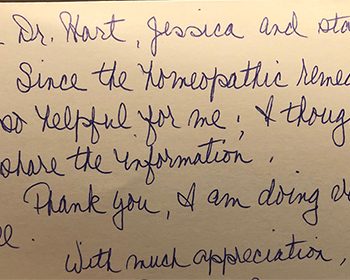 Dr. Hart, Jessica and sta
Since the homeopathic reme
so helpful for me; I thoug
share the information.
Thank you, I am doing v
With much appreciation,